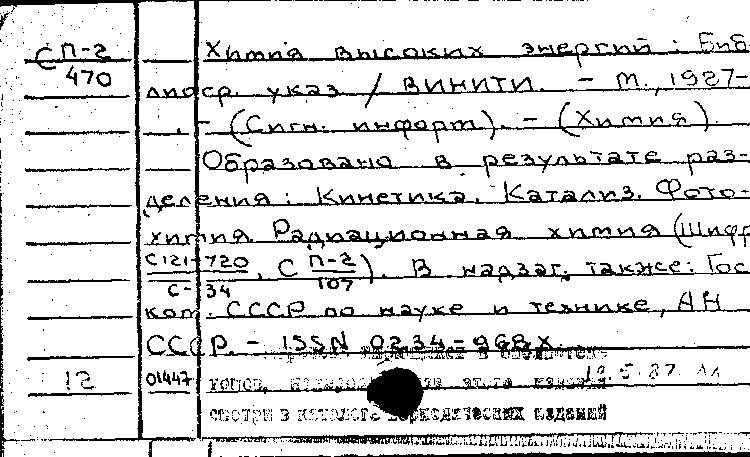 С П-2/470 Химия высоких энергий : Биб
лиогр. указ / ВИНИТИ. - М., 1987-
. - (Сигн. информ). - (Химия).
Образовано в результате раз-
деления: Кинетика. Катализ. Фото-
химия. Радиационная химия (Шифр
С121-720/С-34, С П-2/107). В надзаг. также: Гос
ком. СССР по науке и технике, АН
СССР. - ISSN 0234-968X.
12 01447
томов,
смотри в каталоге периодических изданий